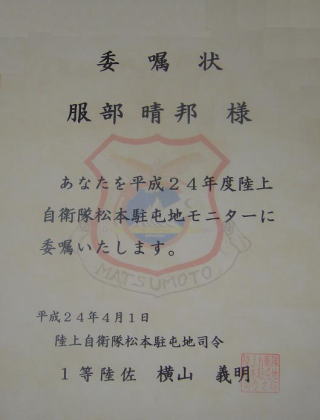 委嘱状
服部晴邦 様
あなたを平成２４年度陸上
自衛隊松本駐屯地モニターに
委嘱いたします。
MATSUMOTO
平成２４年４月１日
陸上自衛隊松本駐屯地司令
１等陸佐 横山 義明